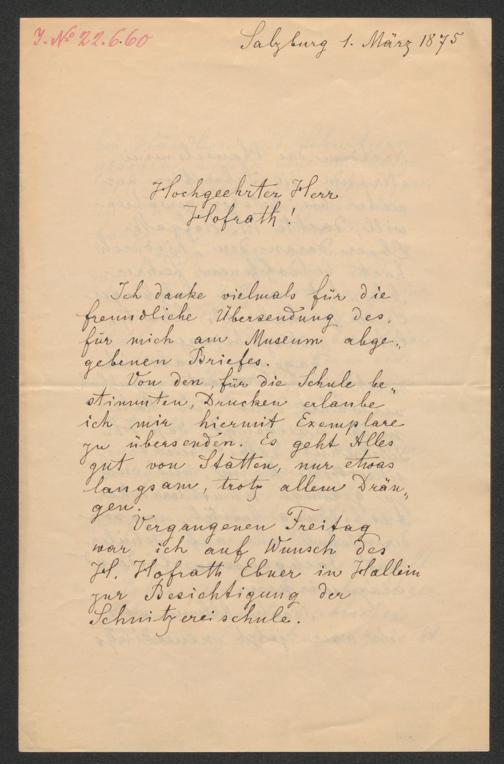 J. No 22.6.60
Salzburg 1. März 1875
Hochgeehrter Herr
Hofrath!
Ich danke vielmals für die
freundliche Übersendung des,
für mich am Museum abge„
gebenen Briefes.
Von den, für die Schule be„
stimmten, Drucken erlaube
ich mir hiermit Exemplare
zu übersenden. Es geht Alles
gut von Statten, nur etwas
langsam, trotz allem Drän„
gen.
Vergangenen Freitag
war ich auf Wunsch des
H. Hofrath Ebner in Hallein
zur Besichtigung der
Schnitzereischule.